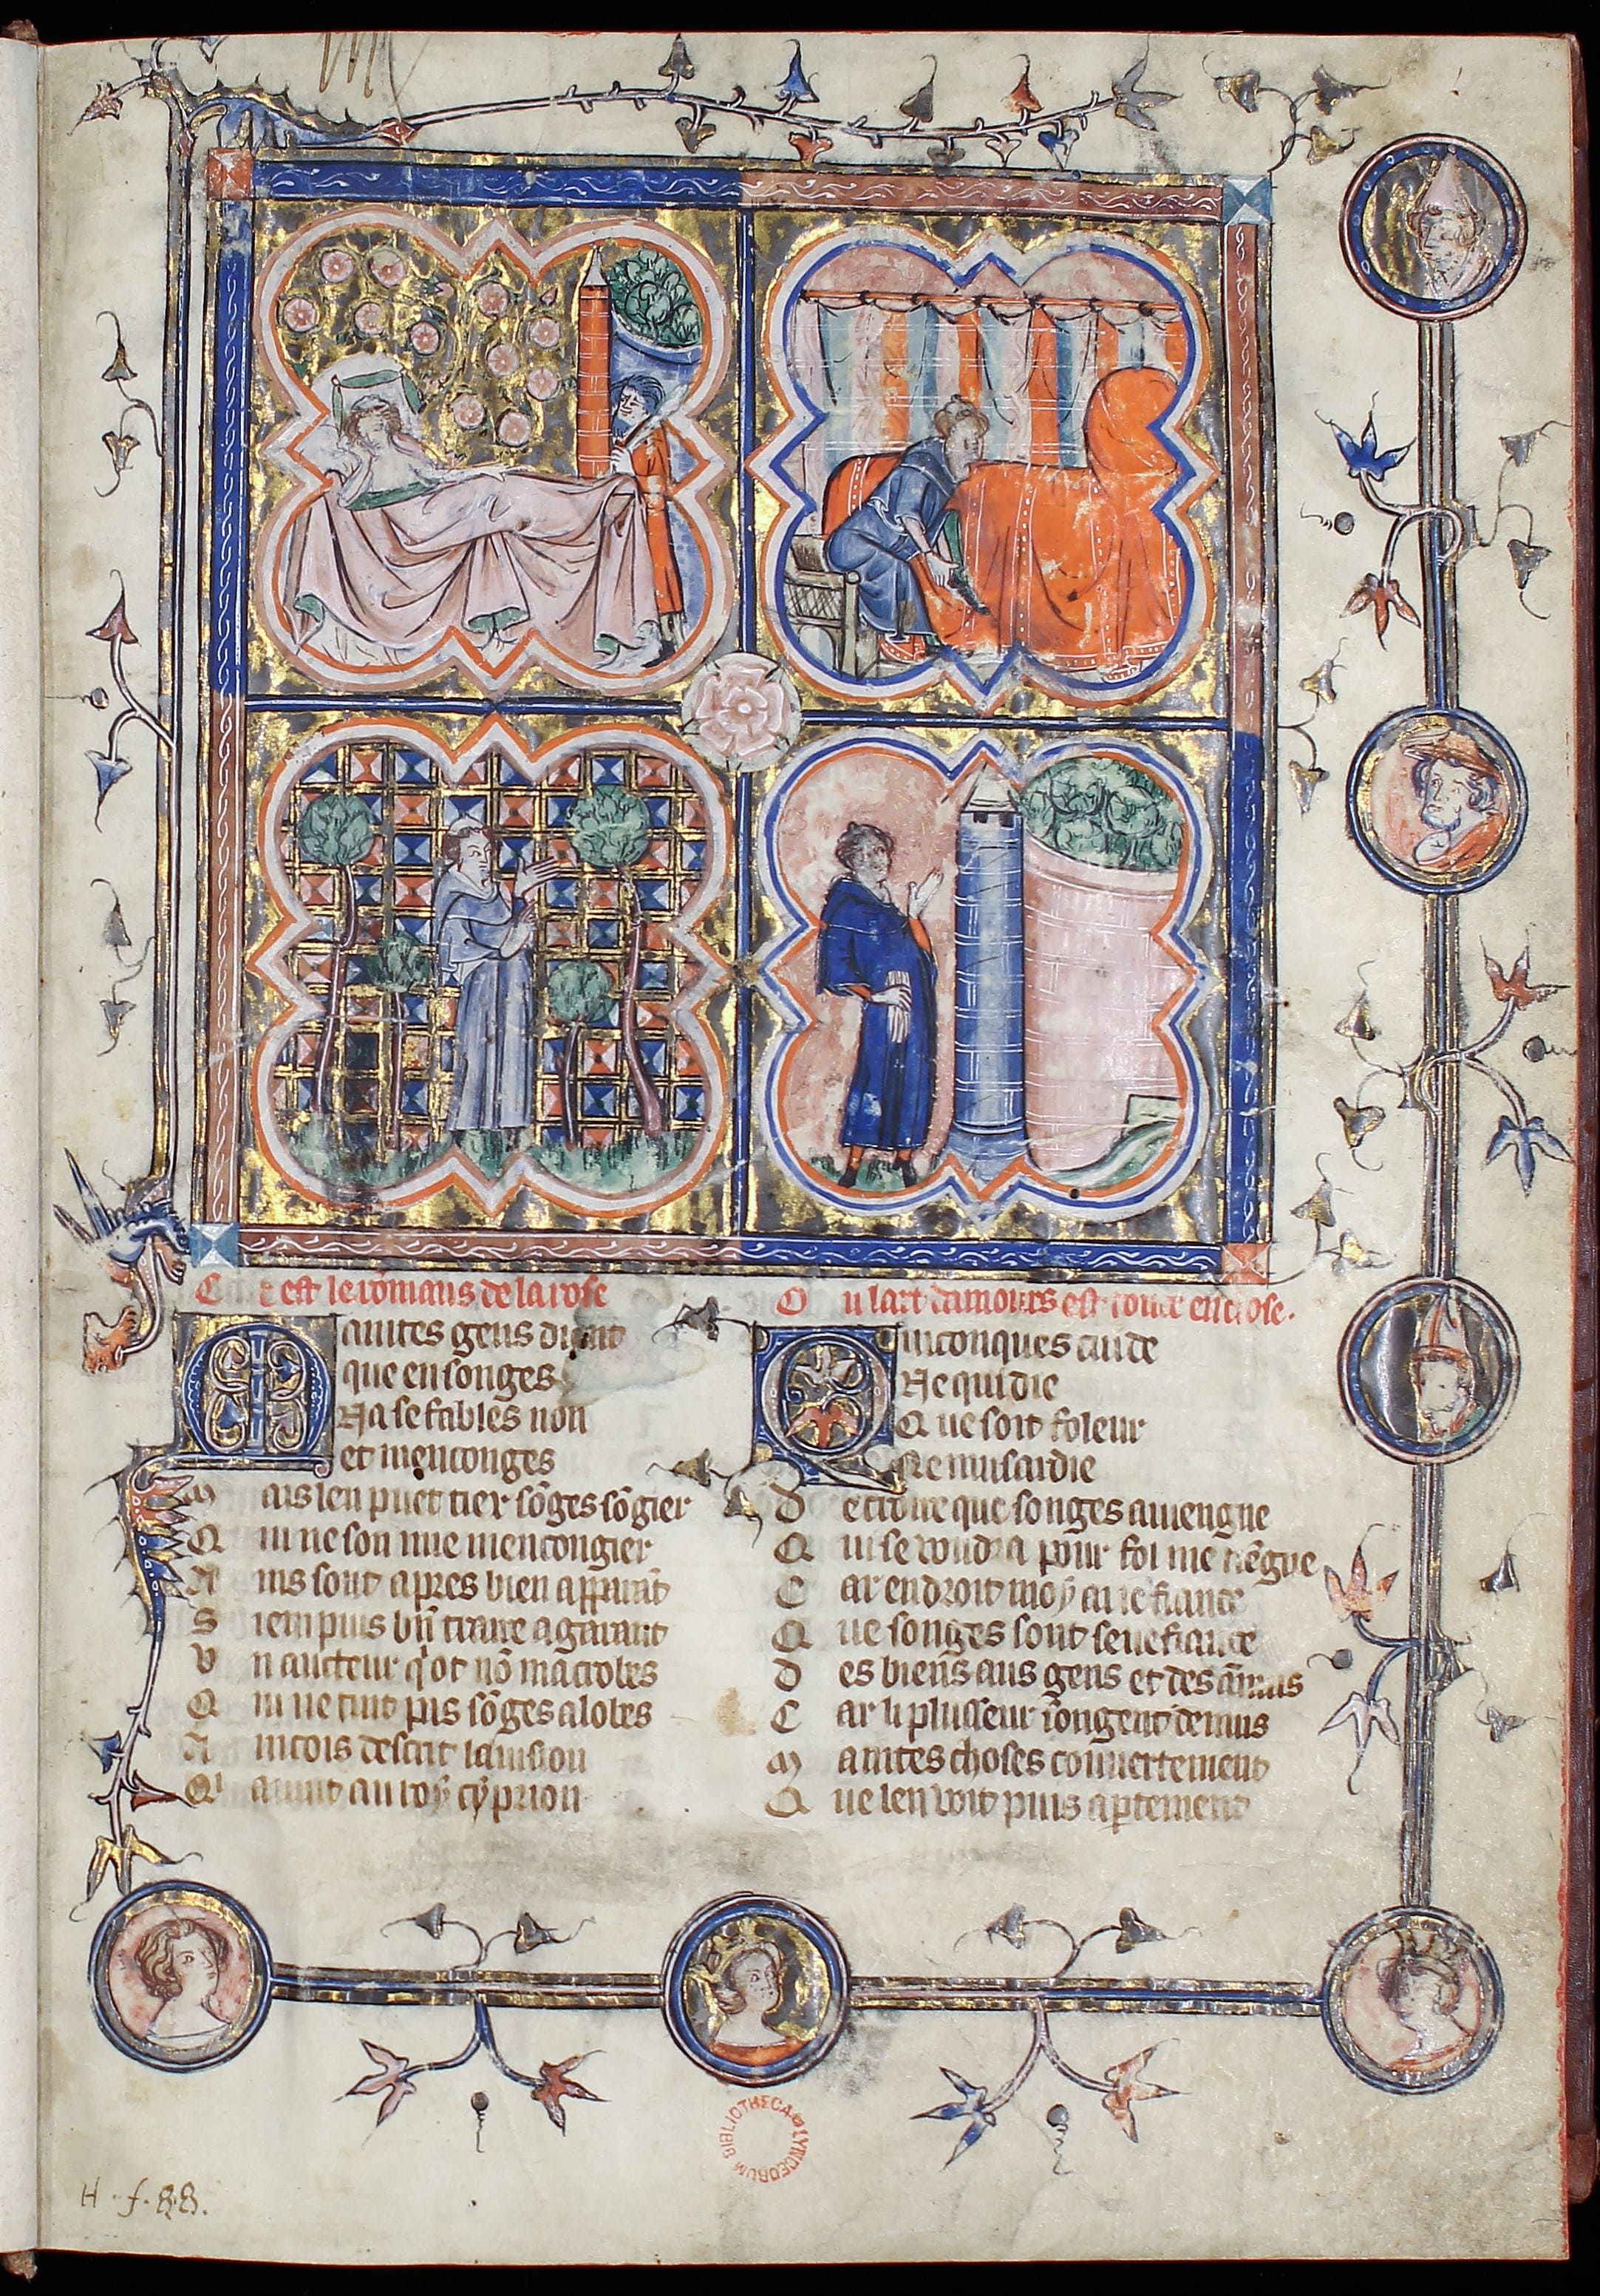 C e est le rōmans de la rose
M aintes gens dient
que en songes
Na se fables non
et menconges
M ais len puet tiex sōges sōgier
Q ui ne son mie mencongier
A ins sont apres bien apparāt
S i en puis bn̄ traire a garant
U n aucteur q'ot nō macrobes
Q ui ne tint pas sōges a lobes
A incois descrit la uision
Q' auint au roy cyprion
O u lart damours est toute enclose.
Q uiconques cuide
Ne qui die
Que soit foleur
Ne musardie
D e croire que songes auiengne
Q ui se uoudra pour fol me tiēgne
C ar endroit moy ai ie fiance
Q ue songes sont senefiance
D es biens aus gens et des ānuis
C ar li plusseur songent de nuis
M aintes choses couuertement
Q ue len uoit puis apertement
BIBLIOTHECA LYNCEORUM
H · f · 88.